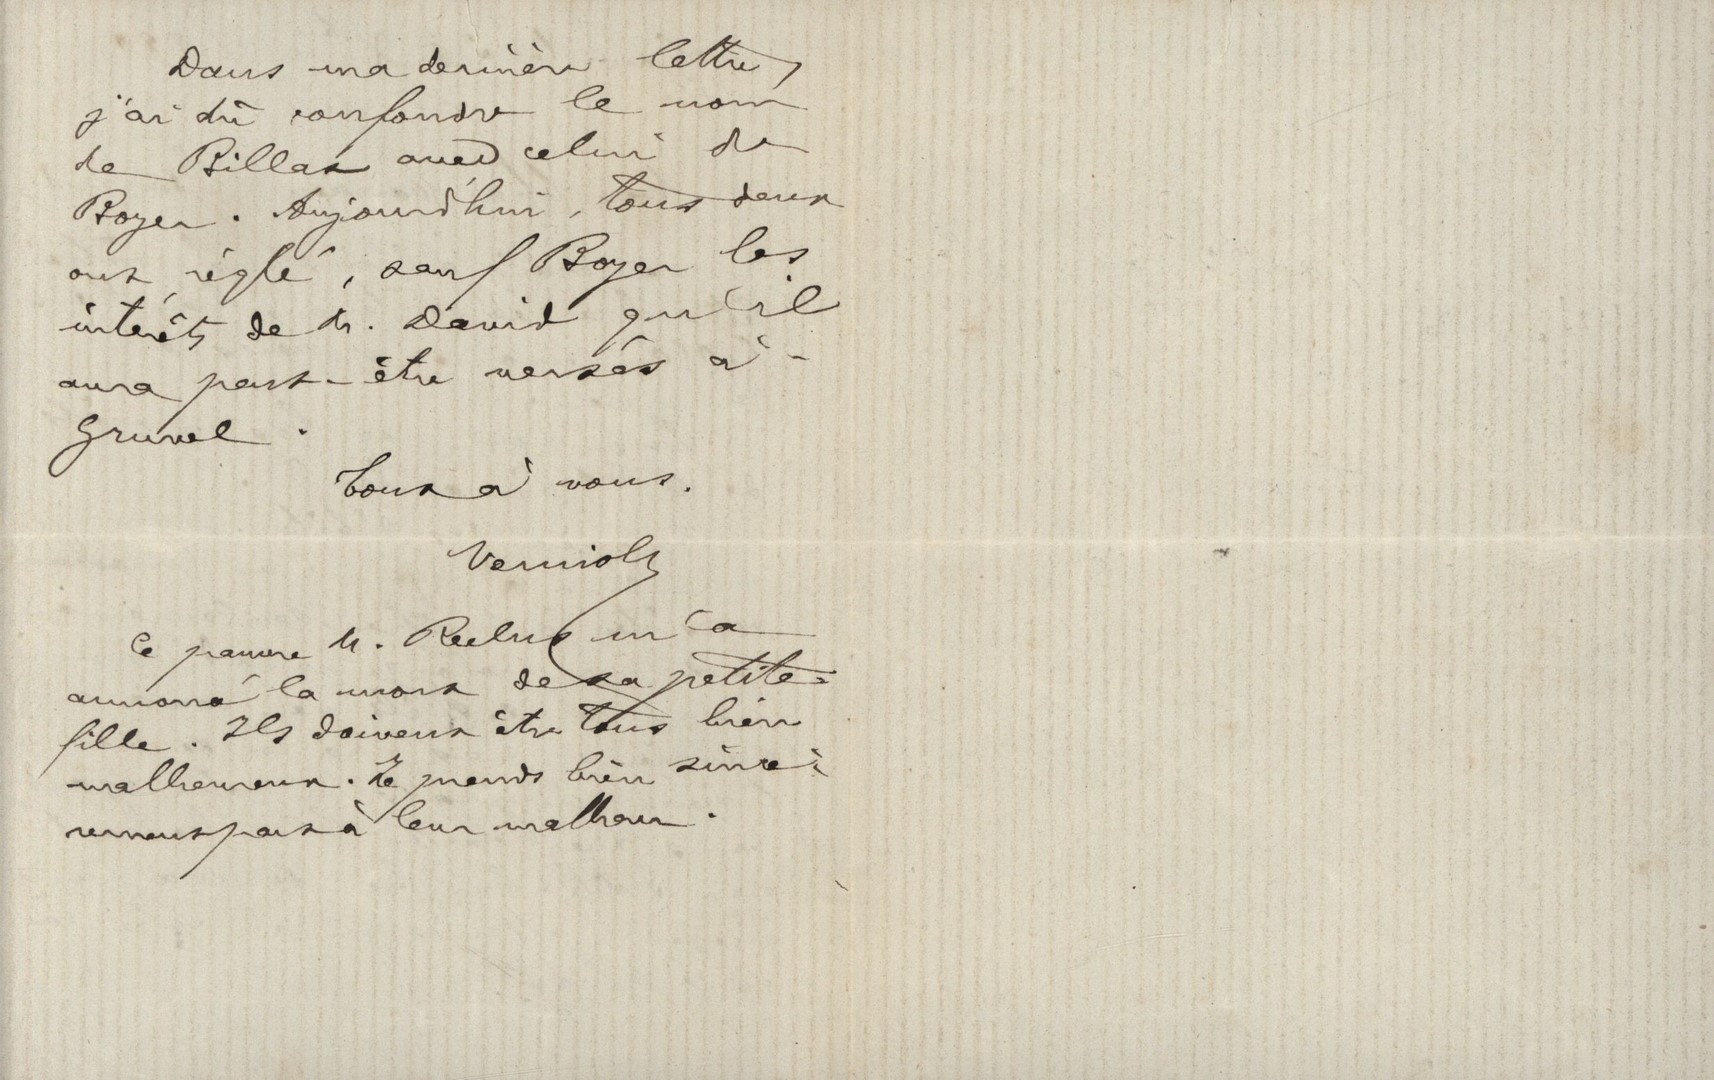 Dans ma dernière lettre,
j'ai dû confondre le nom
de Billat avec celui de
Boyer. Aujourd'hui, tous deux
ont réglé, sauf Boyer les
intérêts de M. David qu'il
aura peut-être versés à
Gruvel.
Tout à vous.
Verniolz
Ce pauvre M. Reclus m'a
annoncé la mort de sa petite-
fille. Ils doivent être tous bien
malheureux. Je prends bien sincè-
rement part à leur malheur.